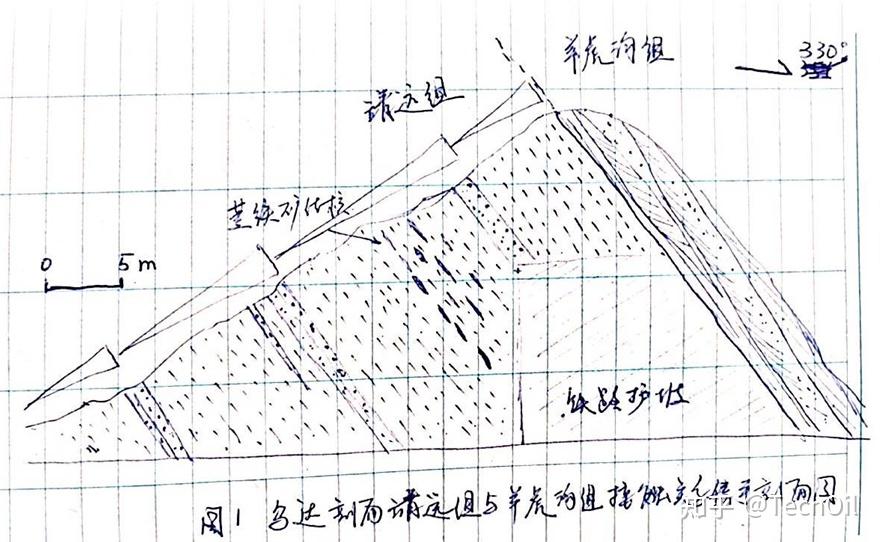 羊虎沟组
330°
靖远组
菱铁矿结核
0 5m
铁路护坡
图1 乌达剖面靖远组与羊虎沟组接触关系信手剖面图
知乎 @TechOil